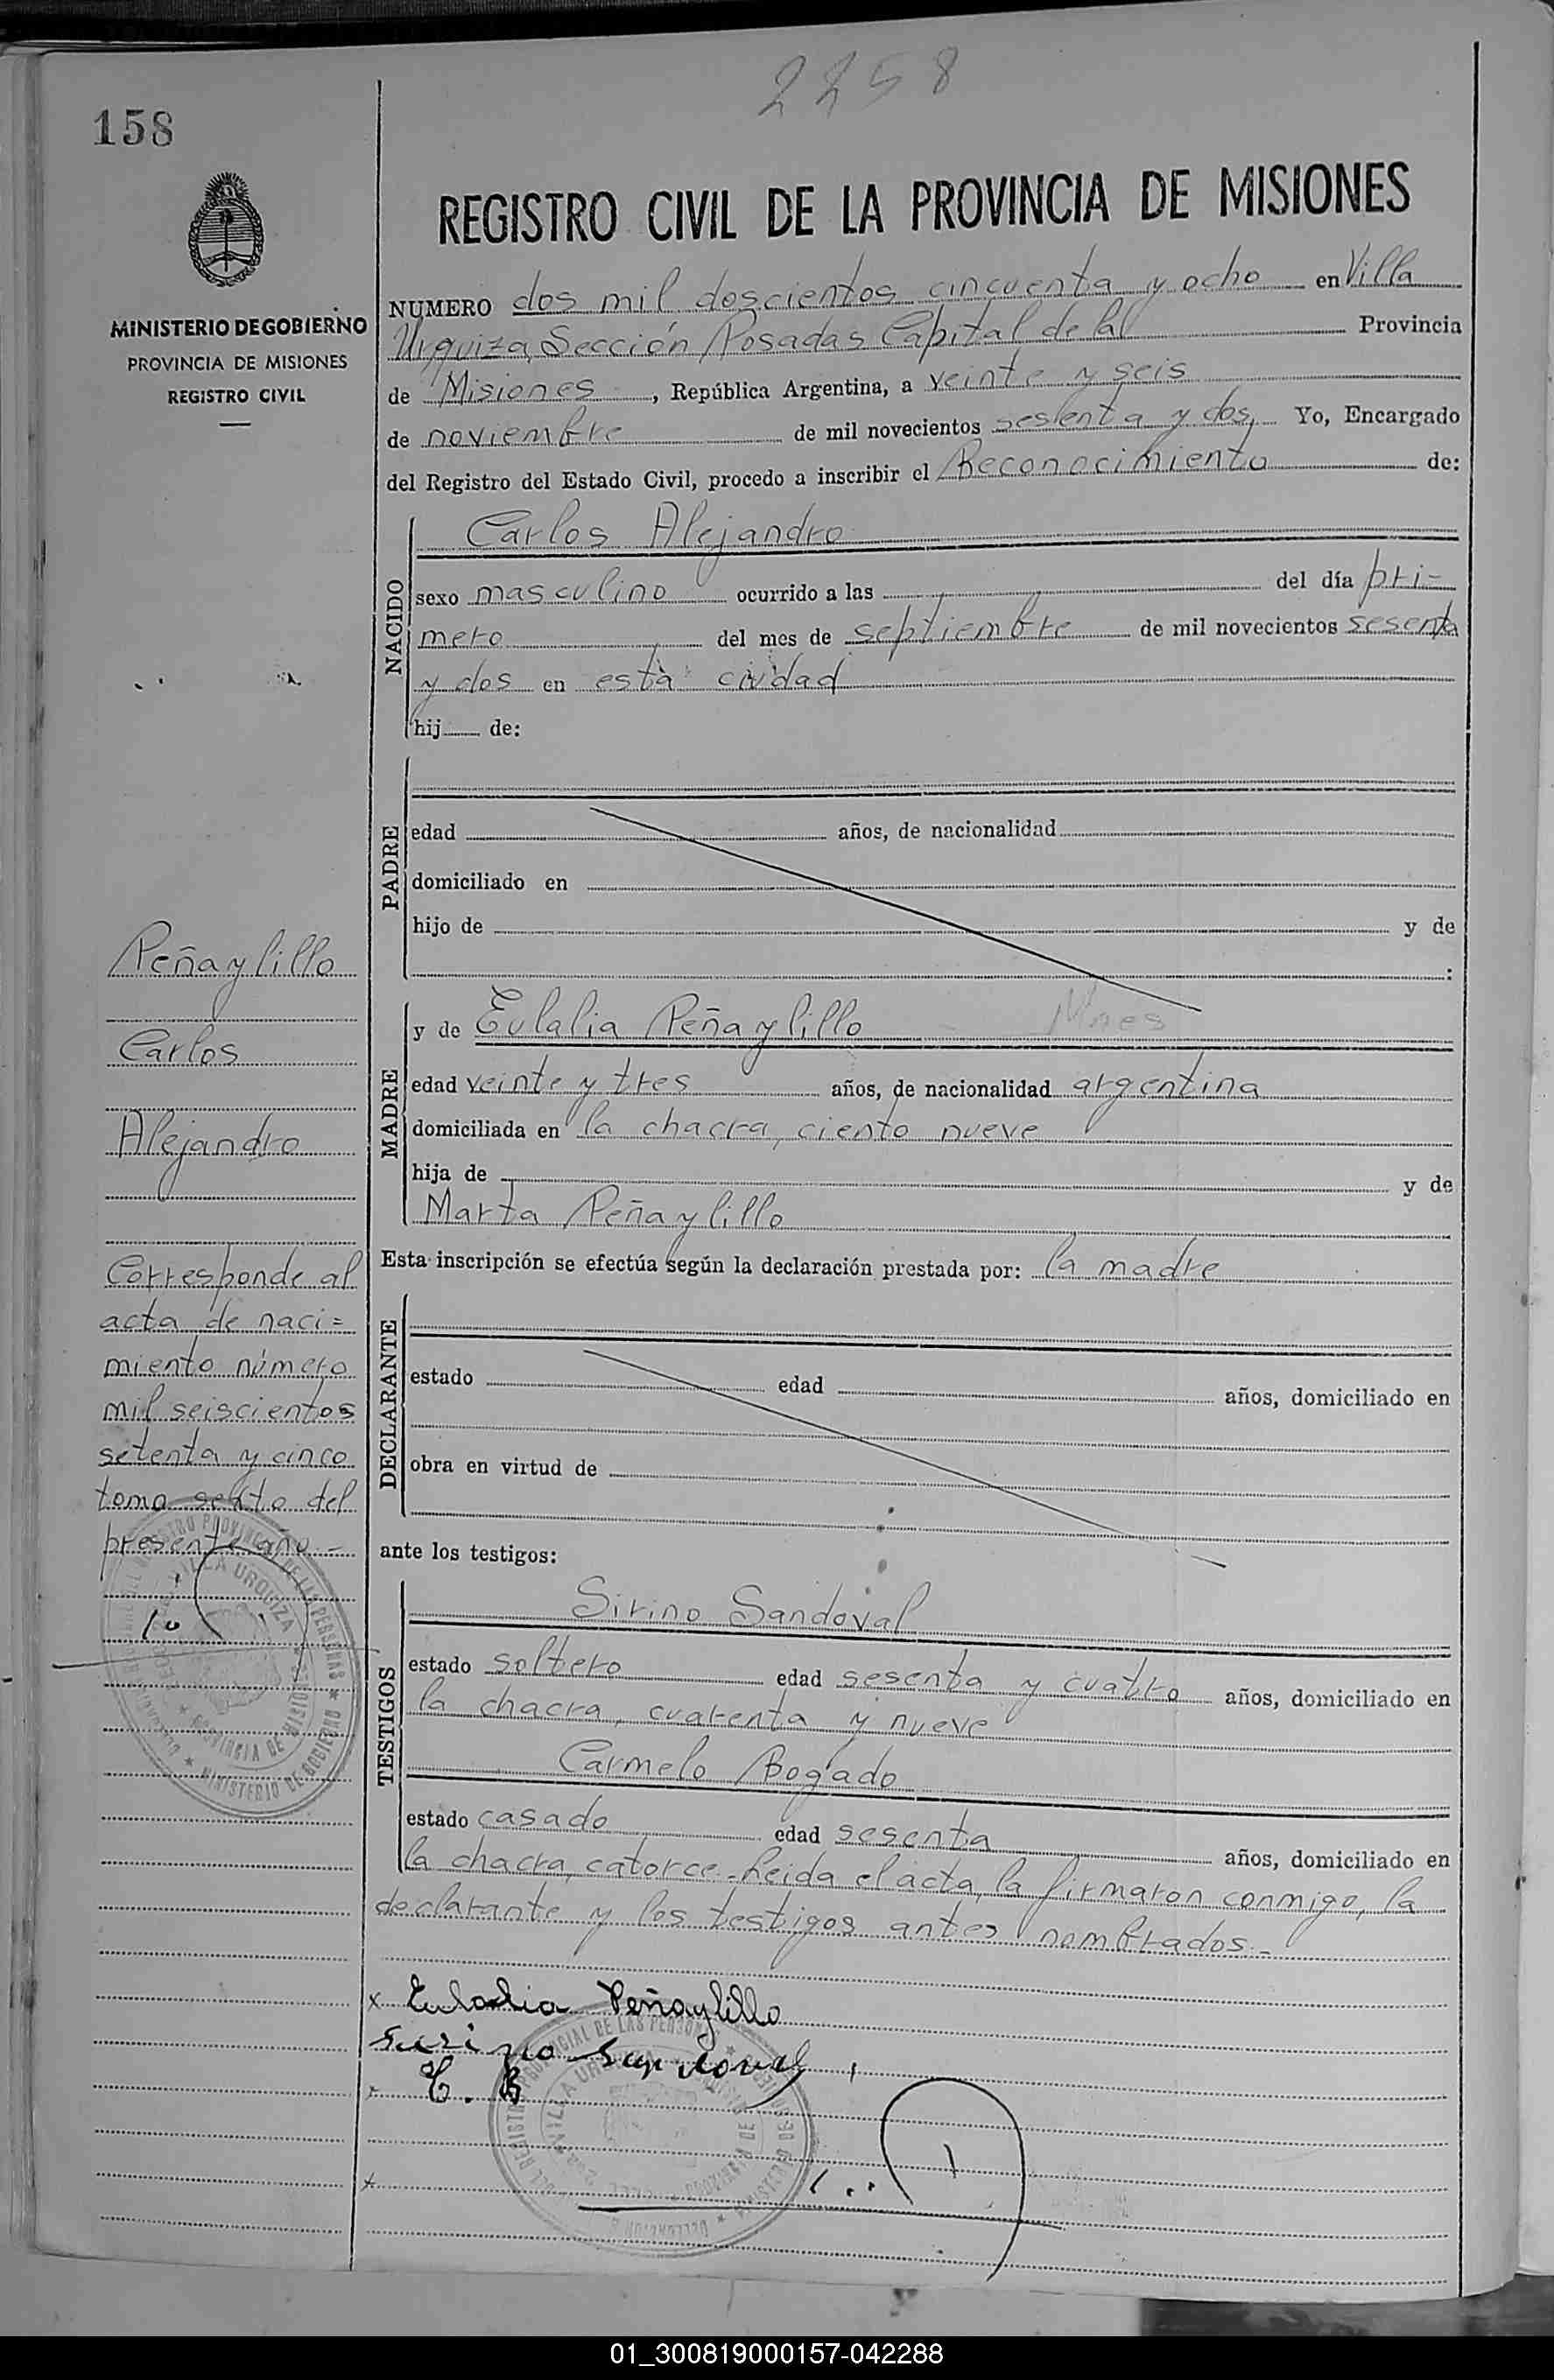 2258
158
REGISTRO CIVIL DE LA PROVINCIA DE MISIONES
MINISTERIO DE GOBIERNO
PROVINCIA DE MISIONES
REGISTRO CIVIL
NUMERO dos mil doscientos cincuenta y ocho en Villa
Urquiza, Sección Posadas Capital de la Provincia
de Misiones, República Argentina, a veinte y seis
de noviembre de mil novecientos sesenta y dos, Yo, Encargado
del Registro del Estado Civil, procedo a inscribir el Reconocimiento de:
NACIDO
Carlos Alejandro
sexo masculino ocurrido a las del día pri-
mero del mes de septiembre de mil novecientos sesenta
y dos en esta ciudad
hij de:
PADRE
edad años, de nacionalidad
domiciliado en
hijo de y de
:
MADRE
y de Eulalia Peñaylillo
edad veinte y tres años, de nacionalidad argentina
domiciliada en la chacra, ciento nueve
hija de y de
Marta Peñaylillo
Esta inscripción se efectúa según la declaración prestada por: la madre
DECLARANTE
estado edad años, domiciliado en
obra en virtud de
ante los testigos:
TESTIGOS
Sirino Sandoval
estado soltero edad sesenta y cuatro años, domiciliado en
la chacra, cuarenta y nueve
Carmelo Bogado
estado casado edad sesenta años, domiciliado en
la chacra, catorce.-Leida el acta, la firmaron conmigo, la
declarante y los testigos antes nombrados.-
Peñaylillo
Carlos
Alejandro
Corresponde al
acta de naci=
miento número
mil seiscientos
setenta y cinco
tomo sexto del
presente año.-
VILLA URQUIZA
PROVINCIA DE MISIONES
MINISTERIO DE GOBIERNO
x Eulalia Peñaylillo
C. B
x
01_300819000157-042288